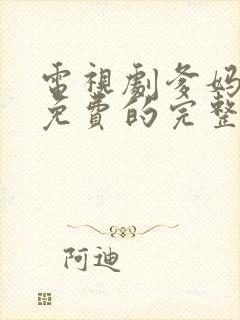 電視劇爹媽
免費的完整
阿迪